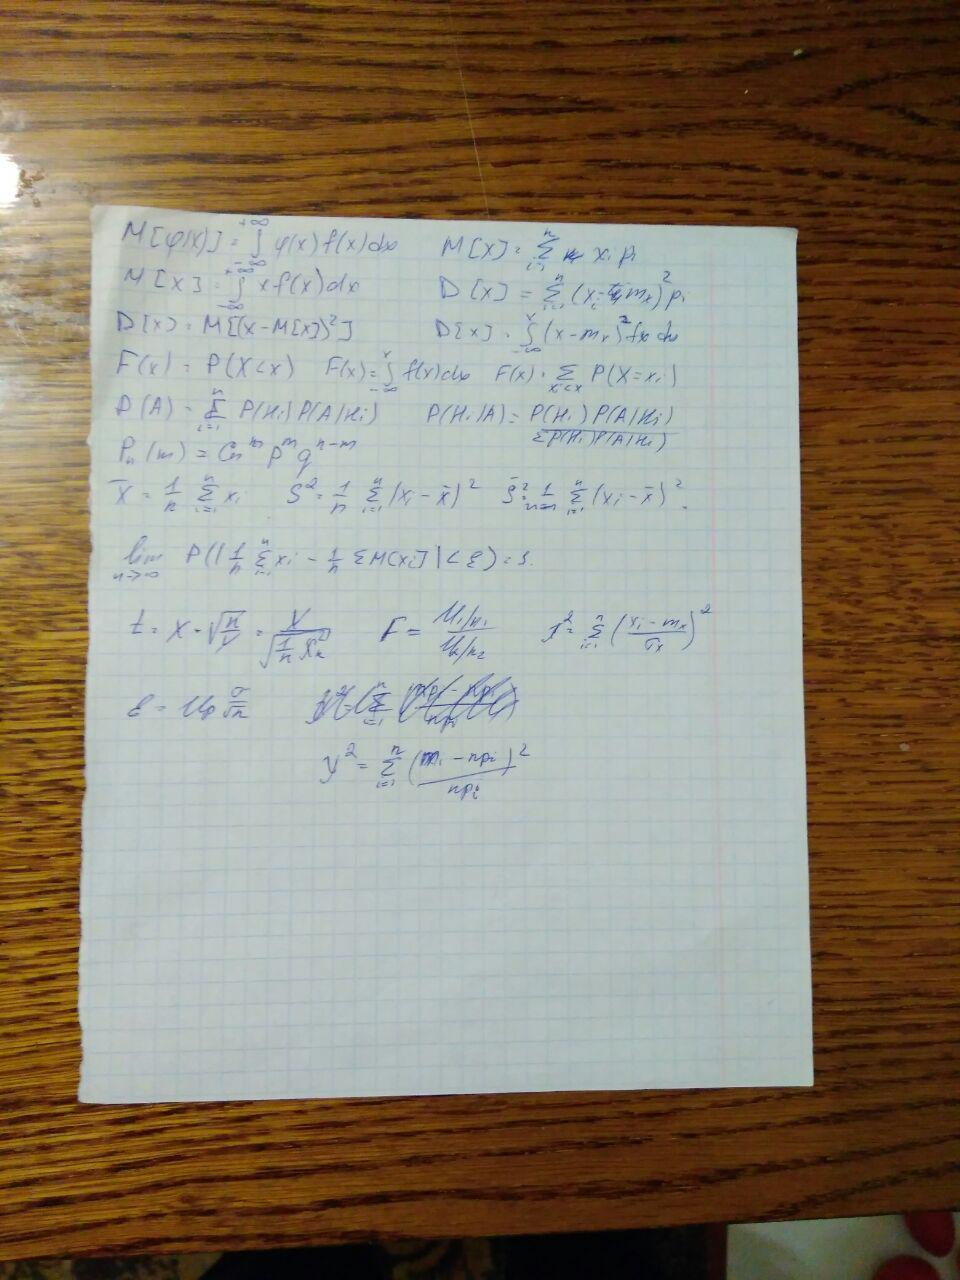 M[φ(x)] = ∫_{-∞}^{+∞} φ(x) f(x) dx M[X] = Σ_{i=1}^{n} x_i p_i
M[X] = ∫_{-∞}^{+∞} x f(x) dx D[X] = Σ_{i=1}^{n} (x_i - m_x)^2 p_i
D[X] = M[(X - M[X])^2] D[X] = ∫_{-∞}^{x} (x - m_x)^2 fx dx
F(x) = P(X < x) F(x) = ∫_{-∞}^{x} f(x) dx F(x) = Σ_{x_i<x} P(X = x_i)
P(A) = Σ_{i=1}^{n} P(H_i) P(A|H_i) P(H_i|A) = P(H_i) P(A|H_i) / Σ P(H_i) P(A|H_i)
P_n(m) = C_n^m p^m q^{n-m}
x̄ = 1/n Σ_{i=1}^{n} x_i S^2 = 1/n Σ_{i=1}^{n} (x_i - x̄)^2 S̄^2 = 1/n-1 Σ_{i=1}^{n} (x_i - x̄)^2.
lim_{n->∞} P(|1/n Σ_{i=1}^{n} x_i - 1/n Σ M[x_i]| < ε) = 1.
t = X · √(n/V) = X / √(1/n χ_n^2) F = U_1/n_1 / U_2/n_2 χ^2 = Σ_{i=1}^{n} ((x_i - m_x)/σ_x)^2
ε = U_p σ/√n
χ^2 = Σ_{i=1}^{n} (m_i - np_i)^2 / np_i